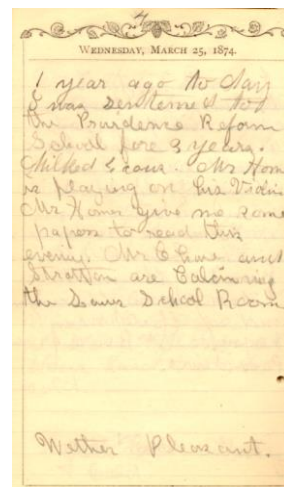 4
WEDNESDAY, MARCH 25, 1874.
1 year ago to day
I was sentenced to
the Providence Reform
School fore 3 years.
Milked 2 cows. Mr Homer
is playing on his Violin
Mr Homer give me some
papers to read this
evening. Mr and
Stratton are Calcimring
the School Room
Wether Pleasant.